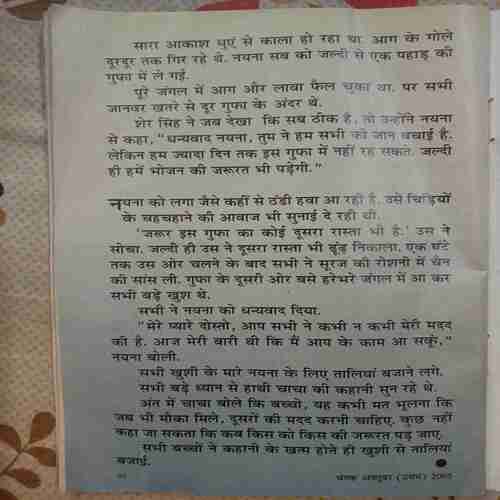 सारा आकाश धुएं से काला हो रहा था. आग के गोले
दूरदूर तक गिर रहे थे. नयना सब को जल्दी से एक पहाड़ की
गुफा में ले गई.
पूरे जंगल में आग और लावा फैल चुका था. पर सभी
जानवर खतरे से दूर गुफा के अंदर थे.
शेर सिंह ने जब देखा कि सब ठीक है, तो उन्होंने नयना
से कहा, “धन्यवाद नयना, तुम ने हम सभी की जान बचाई है.
लेकिन हम ज्यादा दिन तक इस गुफा में नहीं रह सकते. जल्दी
ही हमें भोजन की जरूरत भी पड़ेगी.”
नयना को लगा जैसे कहीं से ठंडी हवा आ रही है. उसे चिड़ियों
के चहचहाने की आवाज भी सुनाई दे रही थी.
‘जरूर इस गुफा का कोई दूसरा रास्ता भी है.’ उस ने
सोचा. जल्दी ही उस ने दूसरा रास्ता भी ढूंढ़ निकाला. एक घंटे
तक उस ओर चलने के बाद सभी ने सूरज की रोशनी में चैन
की सांस ली. गुफा के दूसरी ओर बसे हरेभरे जंगल में आ कर
सभी बड़े खुश थे.
सभी ने नयना को धन्यवाद दिया.
“मेरे प्यारे दोस्तो, आप सभी ने कभी न कभी मेरी मदद
की है. आज मेरी बारी थी कि मैं आप के काम आ सकूं,”
नयना बोली.
सभी खुशी के मारे नयना के लिए तालियां बजाने लगे.
सभी बड़े ध्यान से हाथी चाचा की कहानी सुन रहे थे.
अंत में चाचा बोले कि बच्चो, यह कभी मत भूलना कि
जब भी मौका मिले, दूसरों की मदद करनी चाहिए. कुछ नहीं
कहा जा सकता कि कब किस को किस की जरूरत पड़ जाए.
सभी बच्चों ने कहानी के खत्म होते ही खुशी से तालियां
बजाईं.
चंपक अक्तूबर (प्रथम) 2005